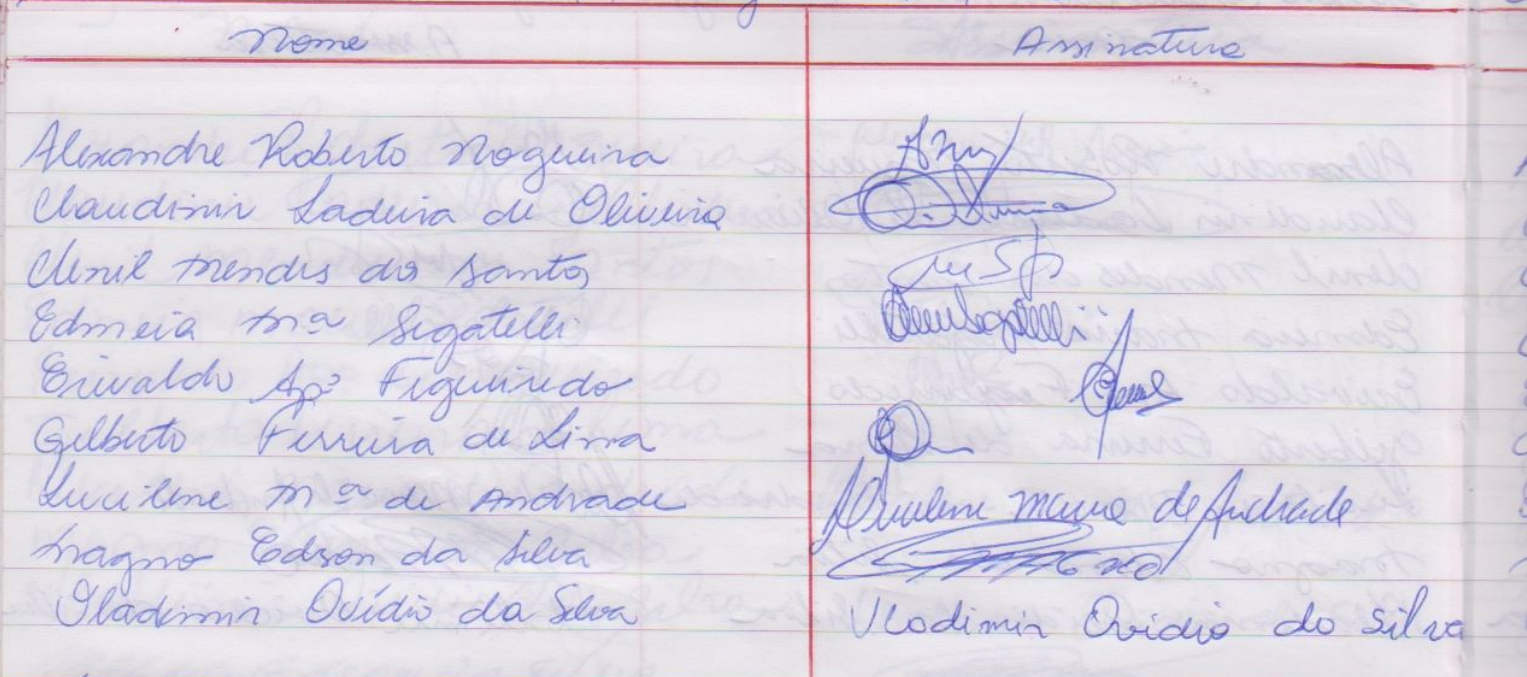 Nome Assinatura
Alexandre Roberto Nogueira
Claudinir Ladeira de Oliveira
Clenil Mendes dos Santos
Edmeia Mª Segatelli
Erivaldo Apº Figueiredo
Gilberto Ferreira de Lima
Lucilene Mª de Andrade Lucilene Maria de Andrade
Magno Edson da Silva
Vladimir Ovídio da Silva Vlodimir Ovidio do Silva